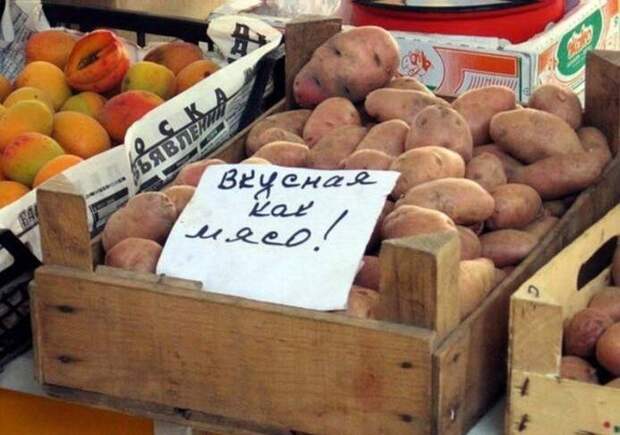 ОСКА
ОБЪЯВЛЕНИЙ
Вкусная
как
мясо!